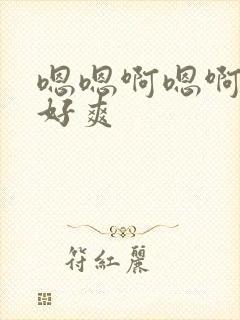 嗯嗯啊嗯啊
好爽
符红丽